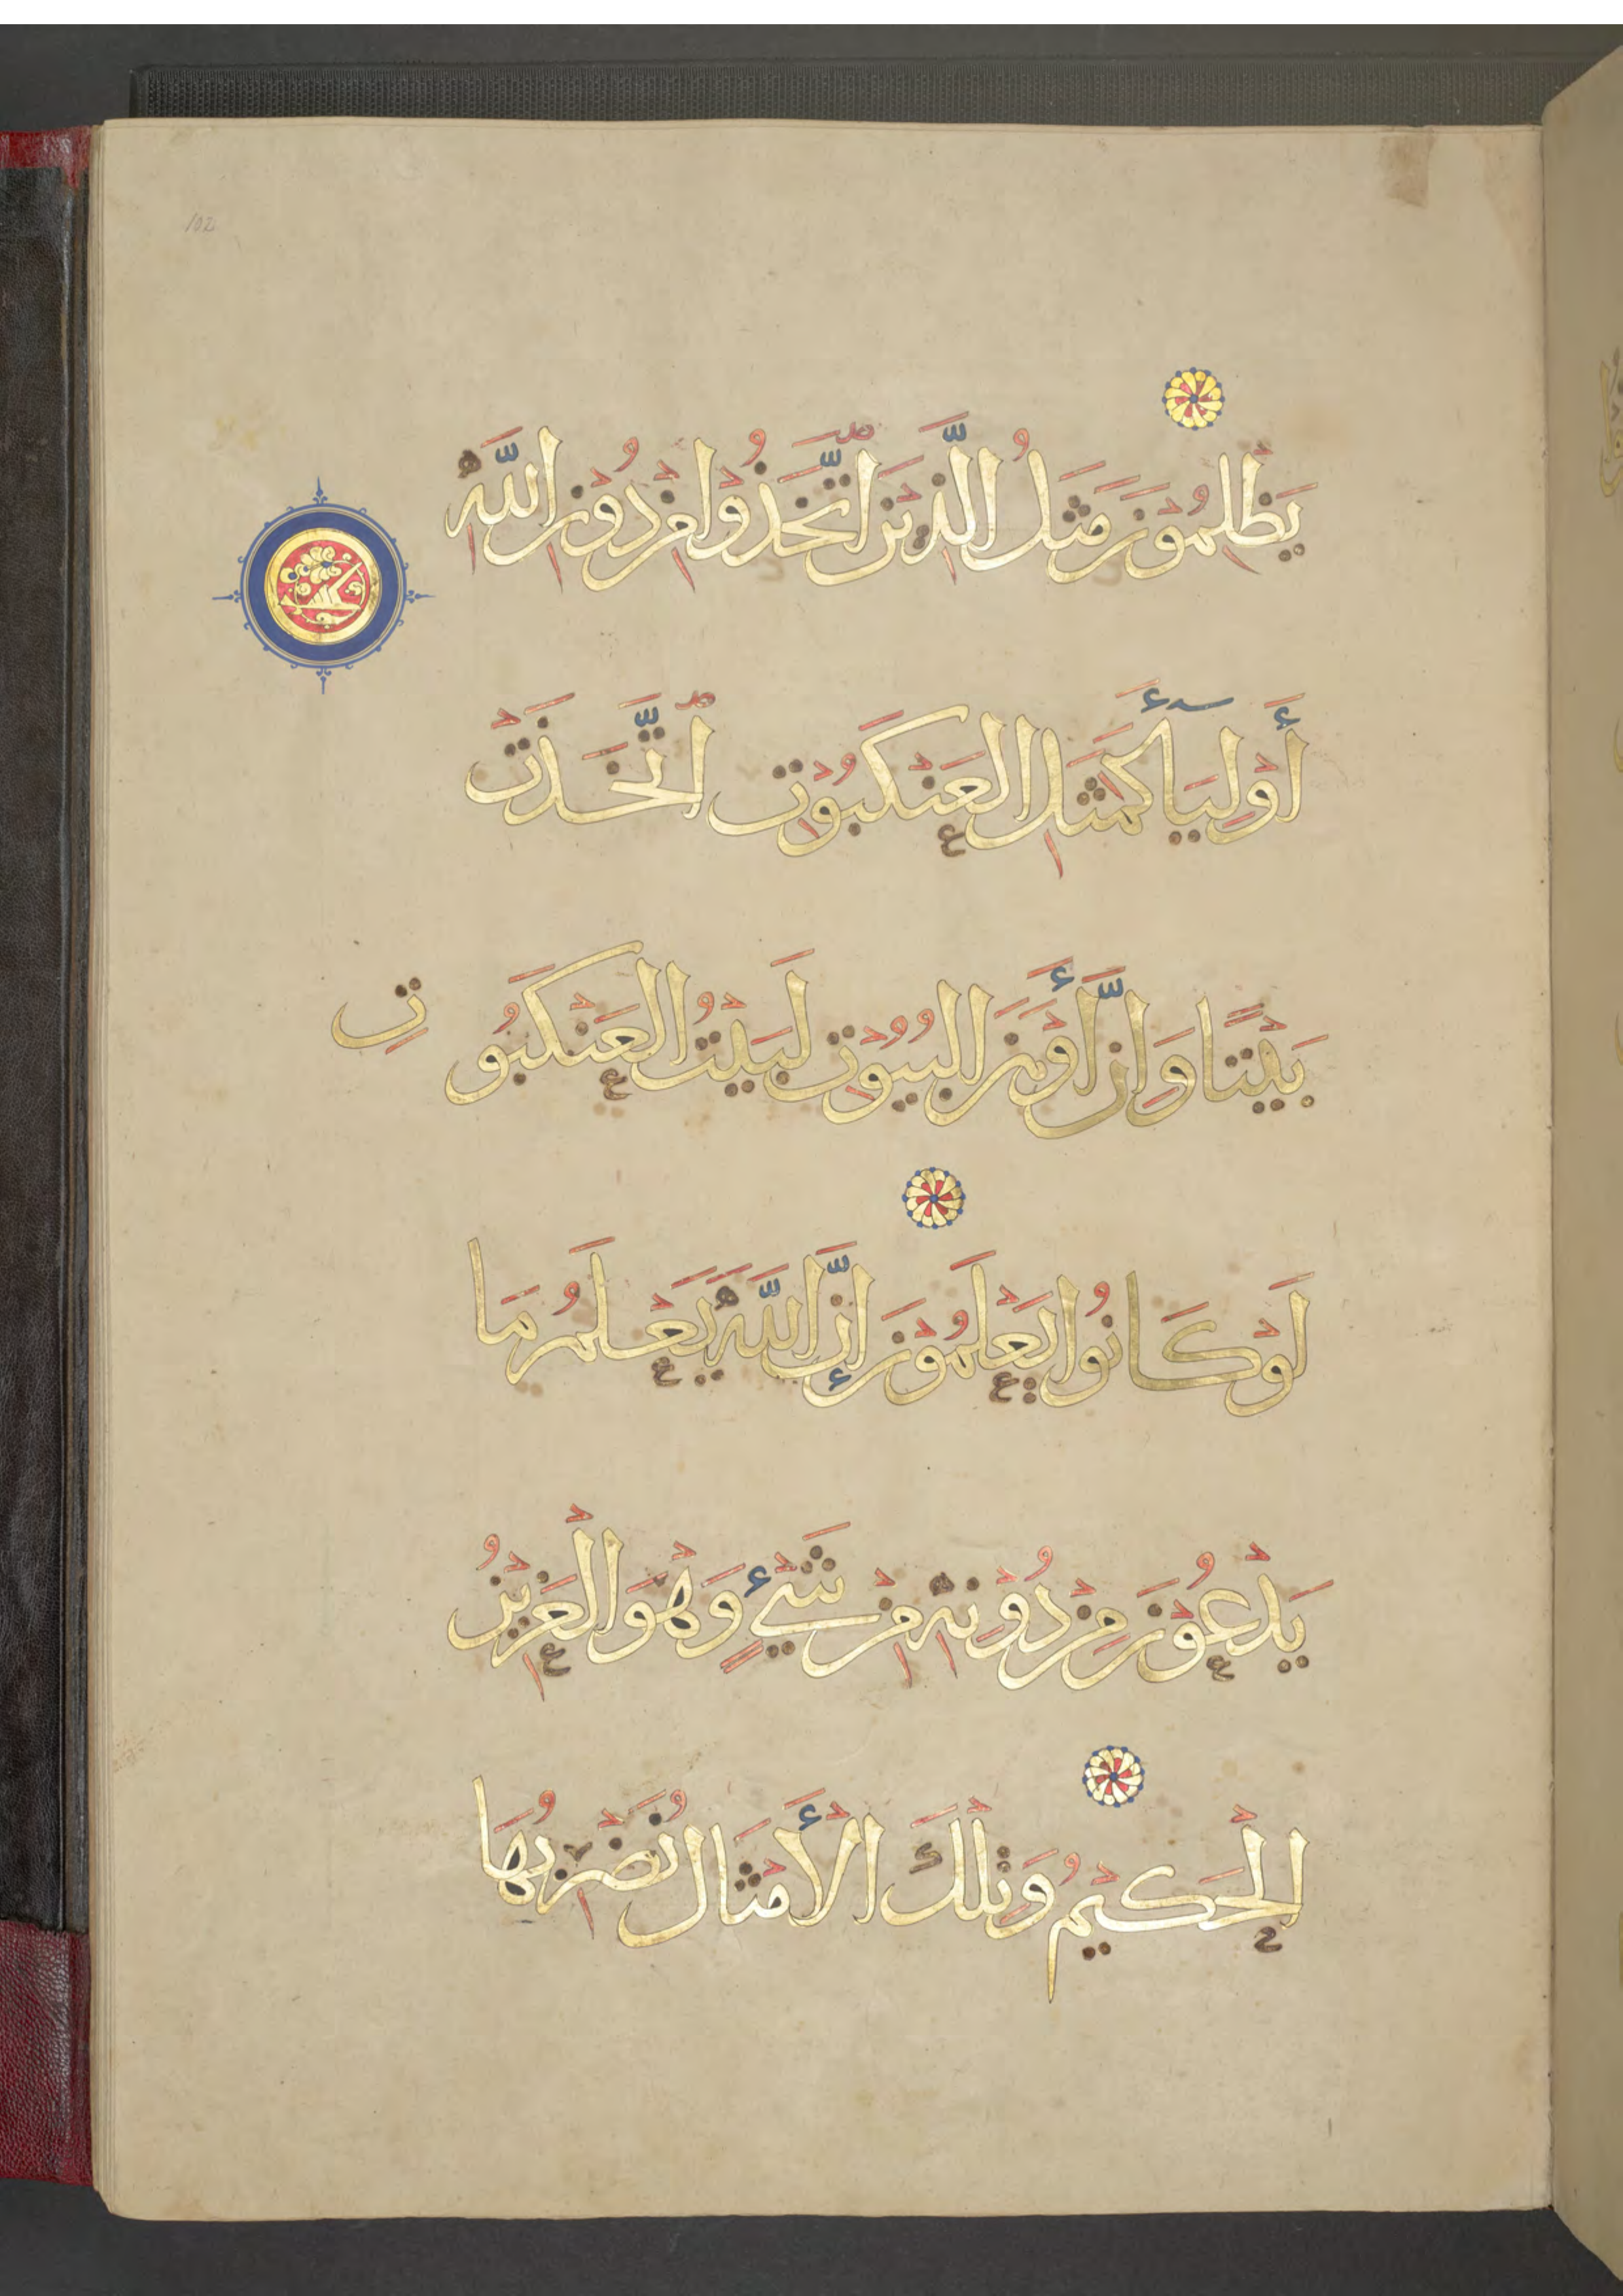 102
يَظْلِمُوْنَ مَثَلُ الَّذِيْنَ اتَّخَذُوْا مِنْ دُوْنِ اللَّهِ
أَوْلِيَآءَ كَمَثَلِ الْعَنْكَبُوْتِ اتَّخَذَتْ
بَيْتًا وَإِنَّ أَوْهَنَ الْبُيُوْتِ لَبَيْتُ الْعَنْكَبُوتِ
لَوْ كَانُوا يَعْلَمُوْنَ إِنَّ اللَّهَ يَعْلَمُ مَا
يَدْعُوْنَ مِنْ دُوْنِهِ مِنْ شَيْءٍ وَهْوَ الْعَزِيْزُ
الْحَكِيْمُ وَتِلْكَ الْأَمْثَالُ نَضْرِبُهَا